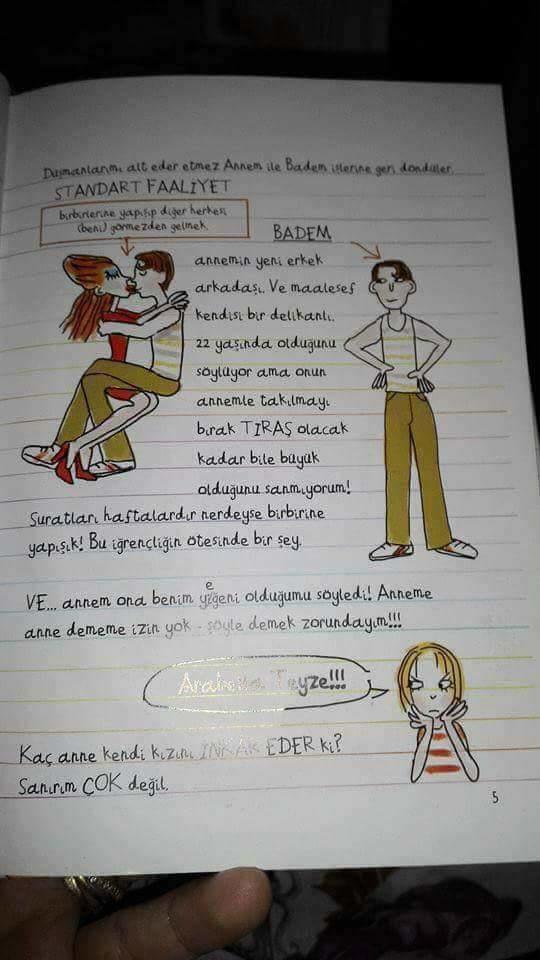 Düşmanlarımı alt eder etmez Annem ile Badem işlerine geri döndüler.
STANDART FAALİYET
birbirlerine yapışıp diğer herkesi
(beni) görmezden gelmek.
BADEM
annemin yeni erkek
arkadaşı. Ve maalesef
kendisi bir delikanlı.
22 yaşında olduğunu
söylüyor ama onun
annemle takılmayı
bırak TIRAŞ olacak
kadar bile büyük
olduğunu sanmıyorum!
Suratları haftalardır nerdeyse birbirine
yapışık! Bu iğrençliğin ötesinde bir şey.
VE... annem ona benim yeğeni olduğumu söyledi! Anneme
anne dememe izin yok - şöyle demek zorundayım!!!
Arabella Teyze!!!
Kaç anne kendi kızını İNKAR EDER ki?
Sanırım ÇOK değil.
5